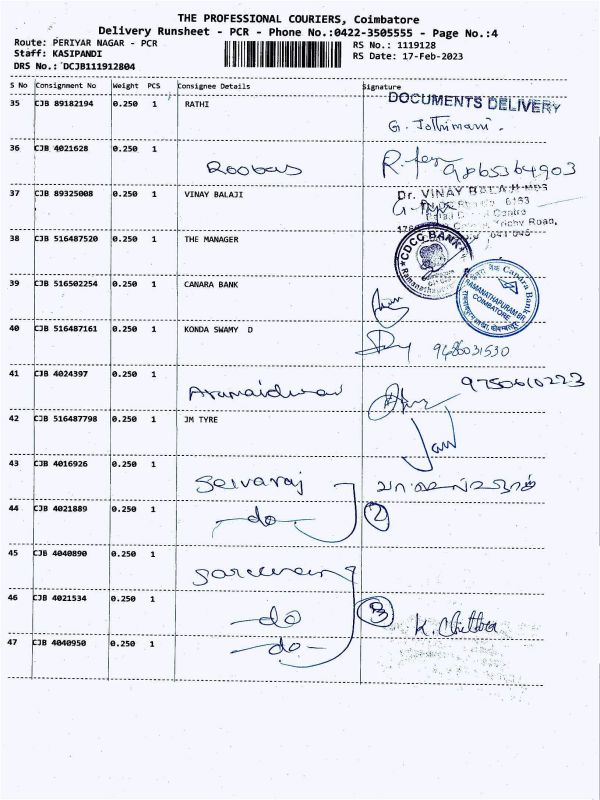 THE PROFESSIONAL COURIERS, Coimbatore
Delivery Runsheet - PCR - Phone No.:0422-3505555 - Page No.:4
Route: PERIYAR NAGAR - PCR
RS No.: 1119128
Staff: KASIPANDI
RS Date: 17-Feb-2023
DRS No.: DCJB111912804
S No Consignment No Weight PCS Consignee Details Signature
35 CJB 89182194 0.250 1 RATHI DOCUMENTS DELIVERY
G. Jothimani.
36 CJB 4021628 0.250 1
Roobas 9865364903
37 CJB 89325008 0.250 1 VINAY BALAJI Dr. VINAY BALAJI MDS
38 CJB 516487520 0.250 1 THE MANAGER
CDCC BANK
39 CJB 516502254 0.250 1 CANARA BANK
Canara Bank
RAMANATHAPURAM BR
COIMBATORE
40 CJB 516487161 0.250 1 KONDA SWAMY D
9486031530
41 CJB 4024397 0.250 1
9750610223
42 CJB 516487798 0.250 1 JM TYRE
43 CJB 4016926 0.250 1
Selvaraj
44 CJB 4021889 0.250 1
-do- 2
45 CJB 4040890 0.250 1
46 CJB 4021534 0.250 1
-do 3 K. Chithra
47 CJB 4040950 0.250 1
-do-